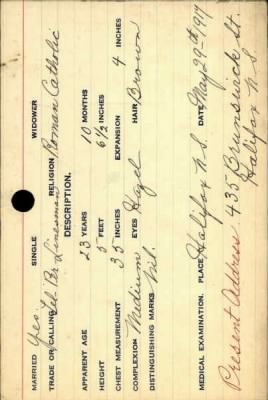 MARRIED Yes SINGLE WIDOWER
TRADE OR CALLING Tel 'Br Linesman RELIGION Roman Catholic
DESCRIPTION.
APPARENT AGE 23 YEARS 10 MONTHS
HEIGHT 5 FEET 6½ INCHES
CHEST MEASUREMENT 35 INCHES EXPANSION 4 INCHES
COMPLEXION Medium EYES Hazel HAIR Brown
DISTINGUISHING MARKS Nil.
MEDICAL EXAMINATION. PLACE Halifax N.S. DATE May 29th 1917
Present Address 435 Brunswick St.
Halifax N.S.